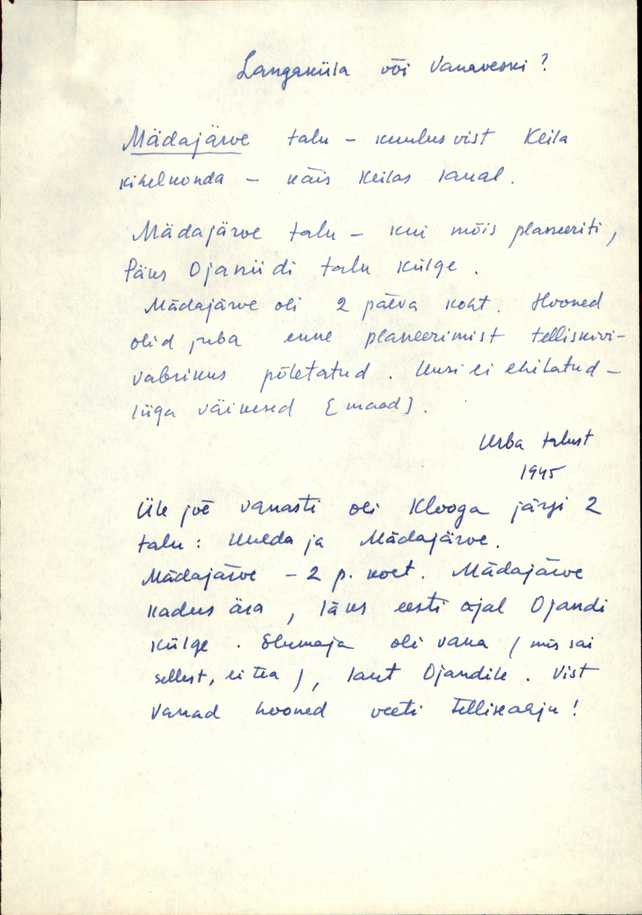 Langaküla või Vanaveski?
Mädajärve talu – kuulus vist Keila
kihelkonda – käis Keilas laual.
Mädajärve talu – kui mõis planeeriti,
läks Ojaniidi talu külge.
Mädajärve oli 2 päeva koht. Hooned
olid juba enne planeerimist telliskivi-
vabrikus põletatud. Uusi ei ehitatud –
liiga väikesed [maad].
Urba talust
1945
Üle jõe vanasti oli Klooga järgi 2
talu: ja Mädajärve.
Mädajärve – 2 p. koht. Mädajärve
kadus ära, läks eesti ajal Ojandi
külge. Elumaja oli vana (mis sai
sellest, ei tea), laut Ojandile. Vist
vanad hooned veeti telliseahju!